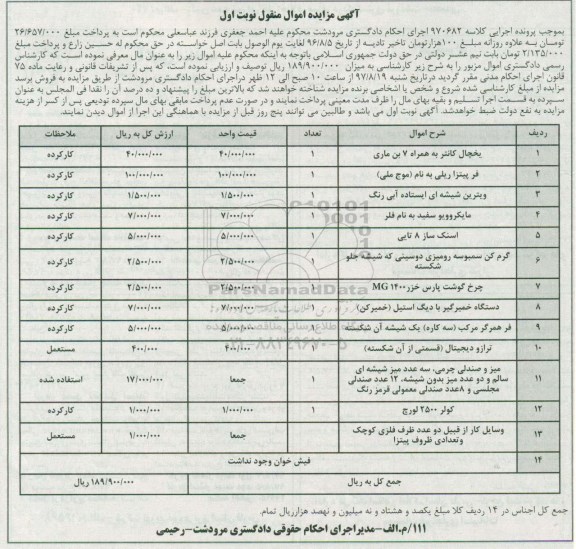 آگهی مزایده اموال منقول نوبت اول
بموجب پرونده اجرایی کلاسه ۹۷۰۶۸۲ اجرای احکام دادگستری مرودشت محکوم علیه احمد جعفری فرزند عباسعلی محکوم است به پرداخت مبلغ ۲۶/۶۵۷/۰۰۰
تومان به علاوه روزانه مبلغ ۱۰۰هزارتومان تاخیر تادیه از تاریخ ۹۶/۸/۵ لغایت یوم الوصول بابت اصل خواسته در حق محکوم له حسین زارع و پرداخت مبلغ
۲/۱۲۵/۰۰۰ تومان بابت نیم عشر دولتی در حق دولت جمهوری اسلامی باتوجه به اینکه محکوم علیه اموال زیر را به عنوان مال معرفی نموده است که کارشناس
رسمی دادگستری اموال مزبور را به شرح زیر کارشناسی به میزان ۱۸۹/۹۰۰/۰۰۰ ریال توصیف و ارزیابی نموده است، که پس از تشریفات قانونی و رعایت ماده ۷۵
قانون اجرای احکام مدنی مقرر گردید درتاریخ شنبه ۹۷/۸/۱۹ از ساعت ۱۰ صبح الی ۱۲ ظهر دراجرای احکام دادگستری مرودشت از طریق مزایده به فروش برسد
مزایده از مبلغ کارشناسی شده شروع و شخص یا اشخاصی برنده مزایده شناخته خواهند شد که بالاترین مبلغ را پیشنهاد و ده درصد آن را نقدا فی المجلس به عنوان
سپرده به قسمت اجرا تسلیم و بقیه بهای مال را ظرف مدت معینی پرداخت نمایند و در صورت عدم پرداخت مابقی بهای مال سپرده تودیعی پس از کسر از هزینه
مزایده به نفع دولت ضبط خواهدشد. آگهی نوبت اول می باشد و طالبین می توانند پنج روز قبل از مزایده با هماهنگی این اجرا از اموال دیدن نمایند.
ردیف شرح اموال تعداد قیمت واحد ارزش کل به ریال ملاحظات
۱ یخچال کانتر به همراه ۷ بن ماری ۱ ۴۰/۰۰۰/۰۰۰ ۴۰/۰۰۰/۰۰۰ کارکرده
۲ فر پیتزا ریلی به نام (موج ملی) ۱ ۱۰۰/۰۰۰/۰۰۰ ۱۰۰/۰۰۰/۰۰۰ کارکرده
۳ ویترین شیشه ای ایستاده آبی رنگ ۱ ۱/۵۰۰/۰۰۰ ۱/۵۰۰/۰۰۰ کارکرده
۴ مایکروویو سفید به نام فلر ۱ ۷/۰۰۰/۰۰۰ ۷/۰۰۰/۰۰۰ کارکرده
۵ اسنک ساز ۸ تایی ۱ ۵/۰۰۰/۰۰۰ ۵/۰۰۰/۰۰۰ کارکرده
۶ گرم کن سمبوسه رومیزی دوسینی که شیشه جلو شکسته ۱ ۲/۵۰۰/۰۰۰ ۲/۵۰۰/۰۰۰ کارکرده
۷ چرخ گوشت پارس خزر MG ۱۴۰۰ ۱ ۲/۵۰۰/۰۰۰ ۲/۵۰۰/۰۰۰ کارکرده
۸ دستگاه خمیرگیر با دیگ استیل (خمیرکن) ۱ ۷/۰۰۰/۰۰۰ ۷/۰۰۰/۰۰۰ کارکرده
۹ فر همرگر مرکب (سه کاره) یک شیشه آن شکسته ۱ ۵/۰۰۰/۰۰۰ ۵/۰۰۰/۰۰۰ کارکرده
۱۰ ترازو دیجیتال (قسمتی از آن شکسته) ۱ ۴۰۰/۰۰۰ ۴۰۰/۰۰۰ مستعمل
۱۱ میز و صندلی چرمی، سه عدد میز شیشه ای
سالم و دو عدد میز بدون شیشه، ۱۲ عدد صندلی
مجلسی و ۸عدد صندلی معمولی قرمز رنگ ۱ جمعا ۱۷/۰۰۰/۰۰۰ استفاده شده
۱۲ کولر ۲۵۰۰ لورچ ۱ ۱/۰۰۰/۰۰۰ ۱/۰۰۰/۰۰۰ کارکرده
۱۳ وسایل کار از قبیل دو عدد ظرف فلزی کوچک
وتعدادی ظروف پیتزا جمعا ۱/۰۰۰/۰۰۰ مستعمل
۱۴ فیش خوان وجود نداشت
جمع کل به ریال ۱۸۹/۹۰۰/۰۰۰ ریال
جمع کل اجناس در ۱۴ ردیف کلا مبلغ یکصد و هشتاد و نه میلیون و نهصد هزارریال تمام.
۱۱۱/م.الف-مدیراجرای احکام حقوقی دادگستری مرودشت-رحیمی
ParsNamadData